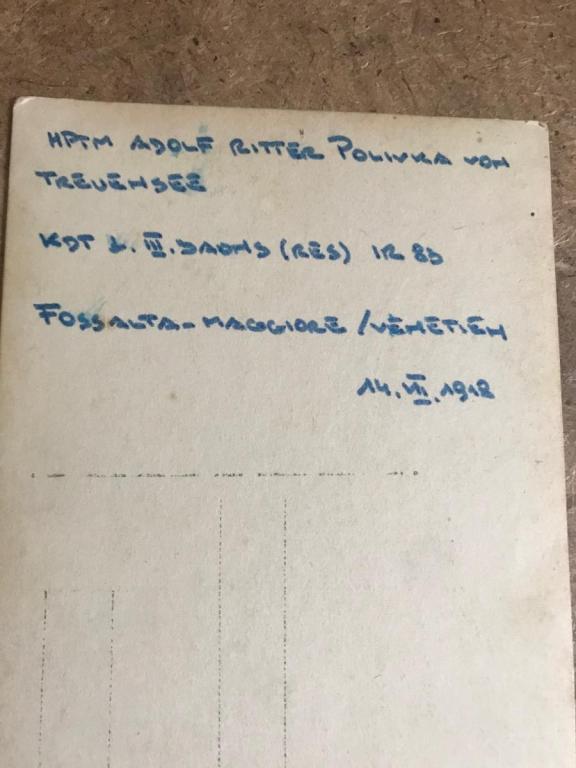 HPTM ADOLF RITTER POLIVKA VON
TREUENSEE
KDT D. III. BAONS (RES) IR 83
FOSSALTA-MAGGIORE / VENETIEN
14. VII. 1918